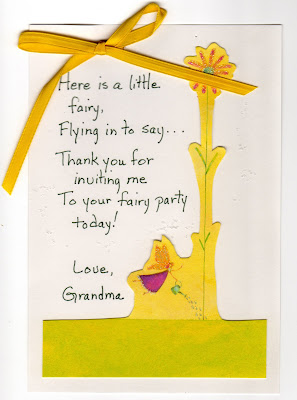 Here is a little
fairy,
Flying in to say...
Thank you for
inviting me
To your fairy party
today!
Love,
Grandma